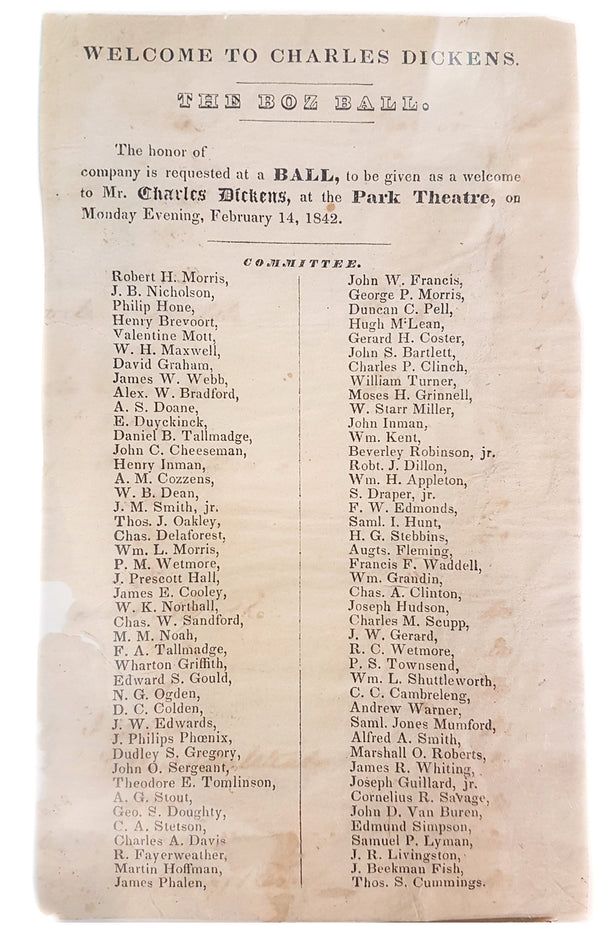 WELCOME TO CHARLES DICKENS.
THE BOZ BALL.
The honor of
company is requested at a BALL, to be given as a welcome
to Mr. Charles Dickens, at the Park Theatre, on
Monday Evening, February 14, 1842.
COMMITTEE.
Robert H. Morris,
J. B. Nicholson,
Philip Hone,
Henry Brevoort,
Valentine Mott,
W. H. Maxwell,
David Graham,
James W. Webb,
Alex. W. Bradford,
A. S. Doane,
E. Duyckinck,
Daniel B. Tallmadge,
John C. Cheeseman,
Henry Inman,
A. M. Cozzens,
W. B. Dean,
J. M. Smith, jr.
Thos. J. Oakley,
Chas. Delaforest,
Wm. L. Morris,
P. M. Wetmore,
J. Prescott Hall,
James E. Cooley,
W. K. Northall,
Chas. W. Sandford,
M. M. Noah,
F. A. Tallmadge,
Wharton Griffith,
Edward S. Gould,
N. G. Ogden,
D. C. Colden,
J. W. Edwards,
J. Philips Phœnix,
Dudley S. Gregory,
John O. Sergeant,
Theodore E. Tomlinson,
A. G. Stout,
Geo. S. Doughty,
C. A. Stetson,
Charles A. Davis
R. Fayerweather,
Martin Hoffman,
James Phalen,
John W. Francis,
George P. Morris,
Duncan C. Pell,
Hugh M'Lean,
Gerard H. Coster,
John S. Bartlett,
Charles P. Clinch,
William Turner,
Moses H. Grinnell,
W. Starr Miller,
John Inman,
Wm. Kent,
Beverley Robinson, jr.
Robt. J. Dillon,
Wm. H. Appleton,
S. Draper, jr.
F. W. Edmonds,
Saml. I. Hunt,
H. G. Stebbins,
Augts. Fleming,
Francis F. Waddell,
Wm. Grandin,
Chas. A. Clinton,
Joseph Hudson,
Charles M. Scupp,
J. W. Gerard,
R. C. Wetmore,
P. S. Townsend,
Wm. L. Shuttleworth,
C. C. Cambreleng,
Andrew Warner,
Saml. Jones Mumford,
Alfred A. Smith,
Marshall O. Roberts,
James R. Whiting,
Joseph Guillard, jr.
Cornelius R. Savage,
John D. Van Buren,
Edmund Simpson,
Samuel P. Lyman,
J. R. Livingston,
J. Beekman Fish,
Thos. S. Cummings.